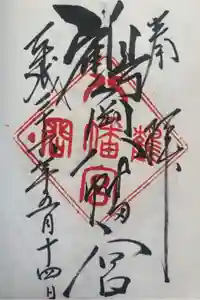 奉拝
鶴岡八幡宮
平成二十年五月十四日
鶴岡
八幡宮